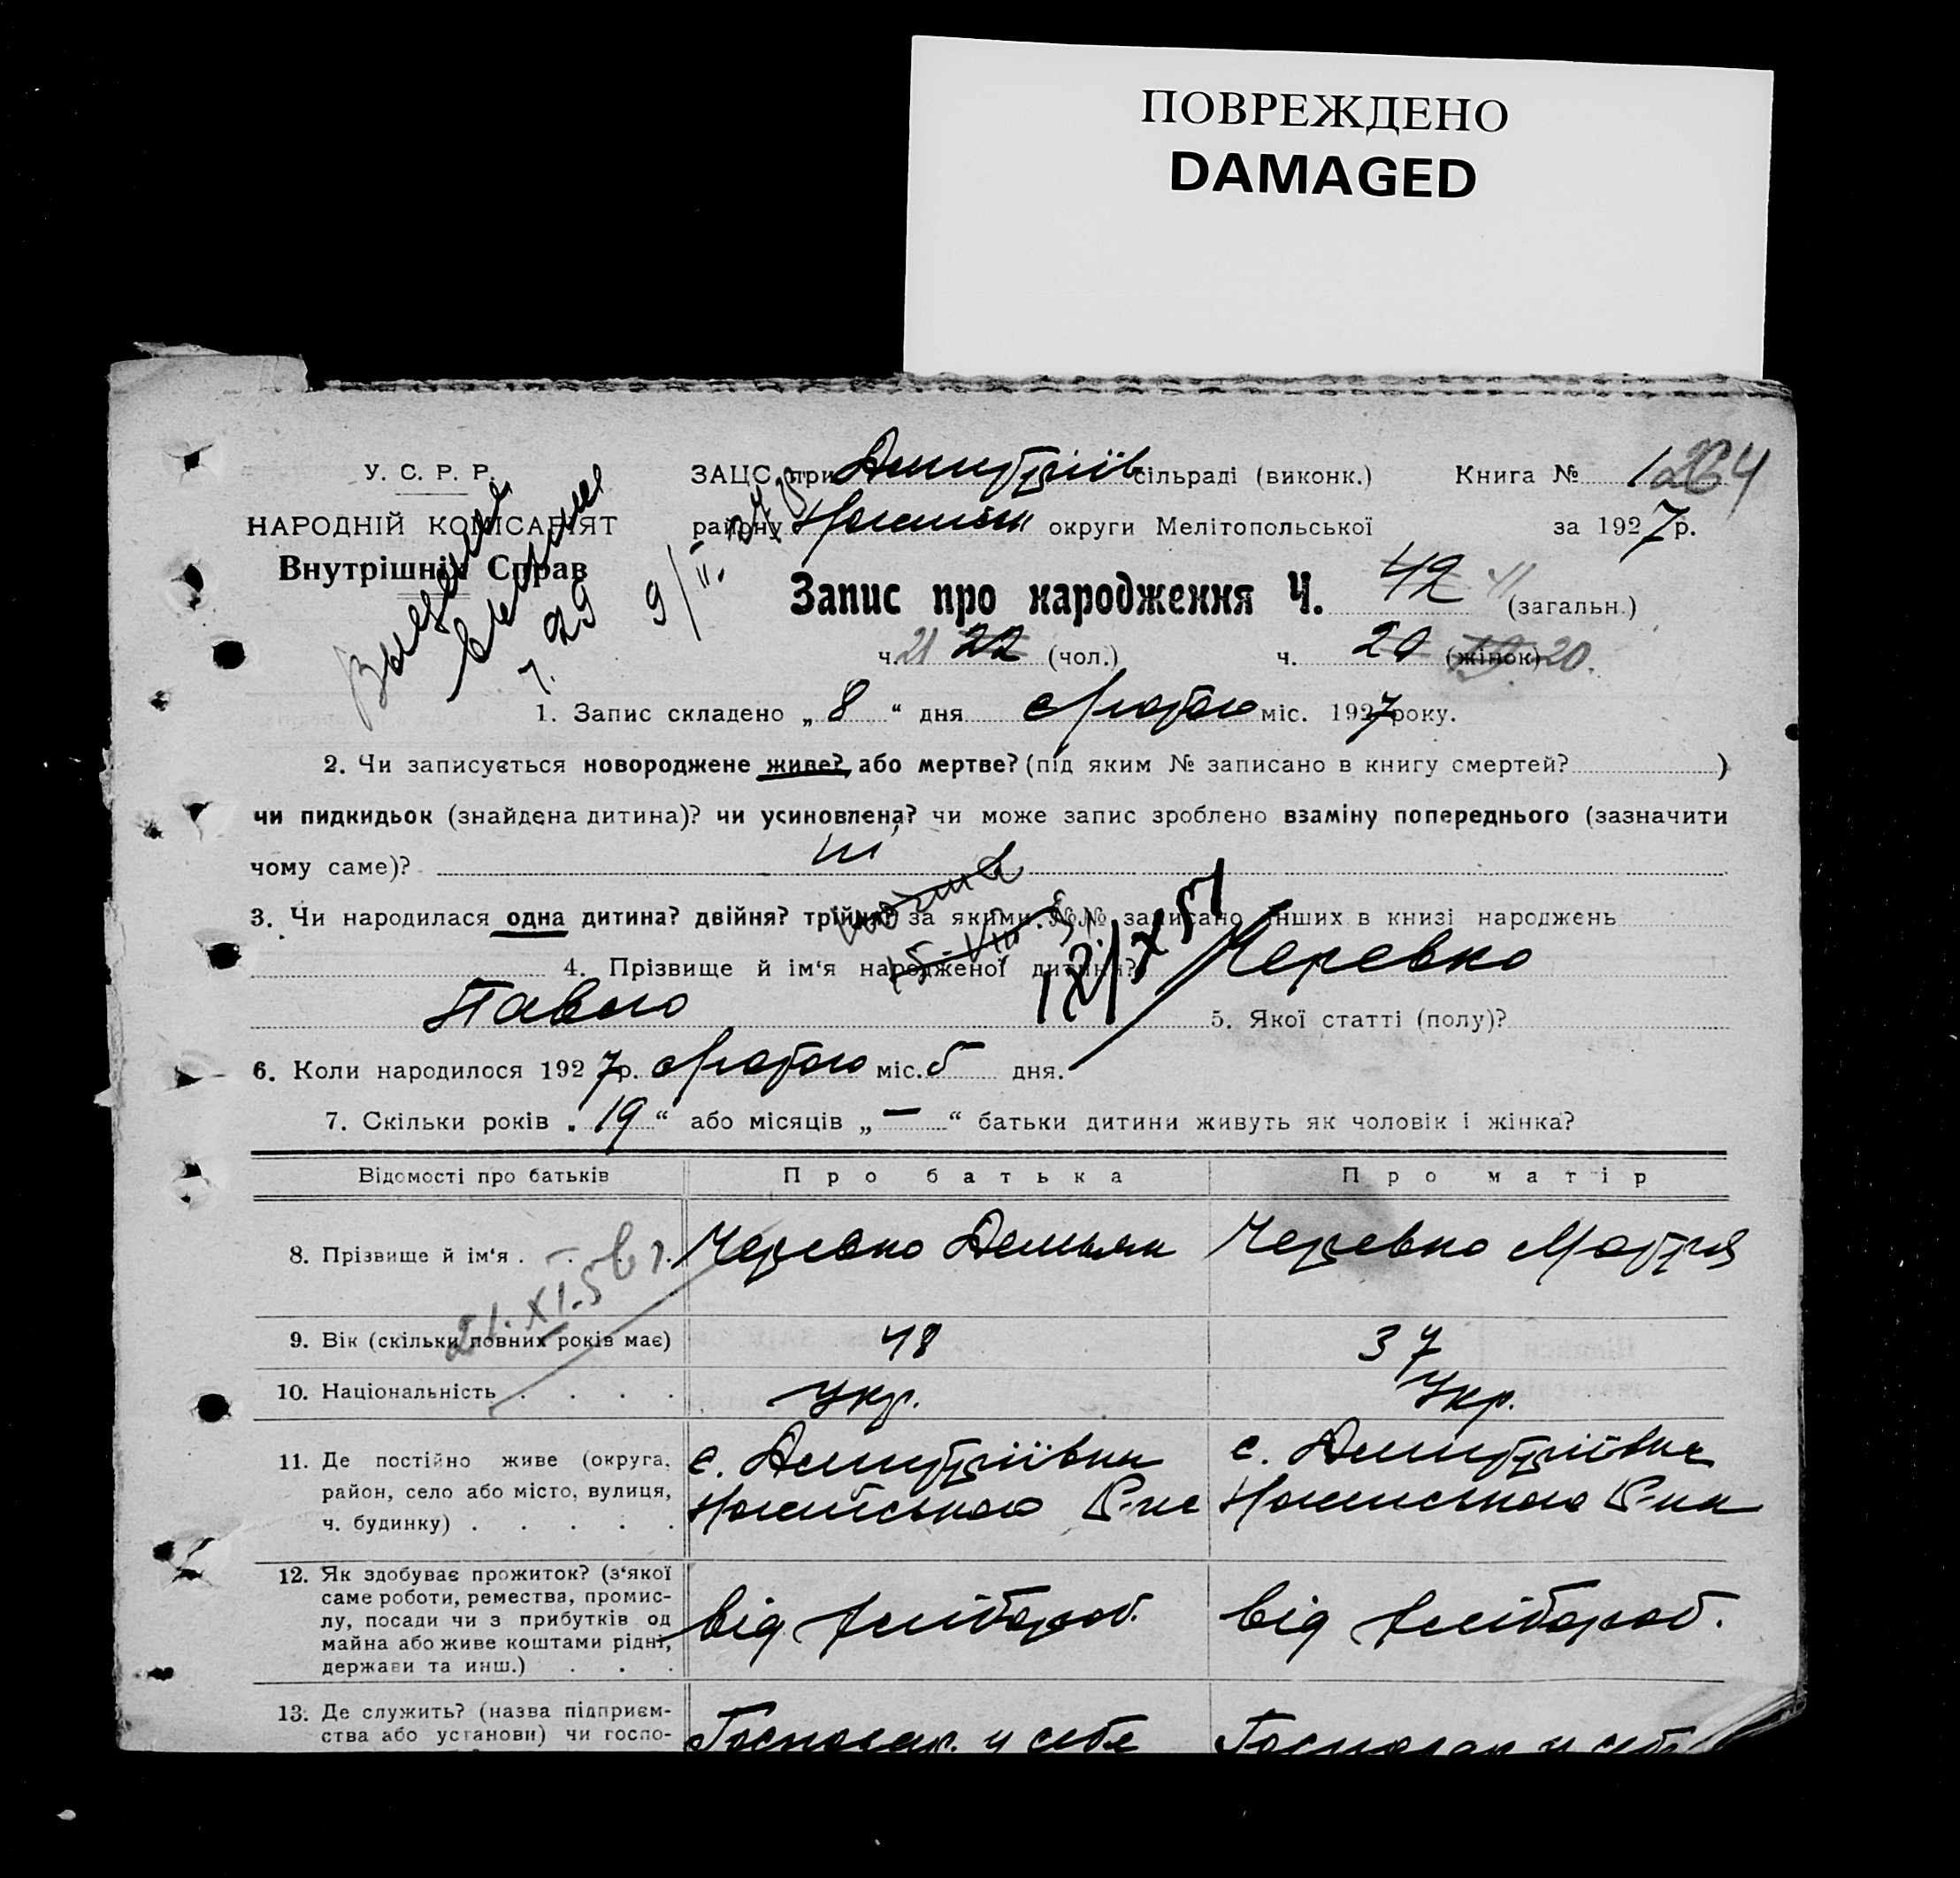 ПОВРЕЖДЕНО
DAMAGED
У. С. Р. Р.
НАРОДНІЙ КОМІСАРІЯТ
Внутрішніх Справ
ЗАЦС при Дмитріїв сільраді (виконк.)
району округи Мелітопольської
Книга № 1 264
за 1927 р.
Запис про народження Ч. 42 41 (загальн.)
ч. 21 22 (чол.) ч. 20 (жінок) 19 20.
9/II.
29
1. Запис складено „ 8 “ дня Лютого міс. 1927 року.
2. Чи записується новороджене живе? або мертве? (під яким № записано в книгу смертей? )
чи пидкидьок (знайдена дитина)? чи усиновлена? чи може запис зроблено взаміну попереднього (зазначити
чому саме)? ні
3. Чи народилася одна дитина? двійня? трійня? за якими №№ записано инших в книзі народжень
12/X 51
4. Прізвище й ім‘я народженої дитини? Черевко
Павло 5. Якої статті (полу)?
6. Коли народилося 1927 р. Лютого міс. 5 дня.
7. Скільки років „ 19 “ або місяців „ — “ батьки дитини живуть як чоловік і жінка?
Відомості про батьків Про батька Про матір
8. Прізвище й ім‘я . . . . Черевко Демьян Черевко Мотря
21.XI.56 г.
9. Вік (скільки повних років має) 48 37
10. Національність . . . . Укр. Укр.
11. Де постійно живе (округа,
район, село або місто, вулиця,
ч. будинку) . . . . .
с. Дмитріївка
Ногайського Р-на
с. Дмитріївка
Ногайського Р-на
12. Як здобуває прожиток? (з‘якої
саме роботи, ремества, промис-
лу, посади чи з прибутків од
майна або живе коштами рідні,
держави та инш.) . . .
від хлібороб. від хлібороб.
13. Де служить? (назва підприєм-
ства або установи) чи госпо-
Господар. у себе Господар у себе